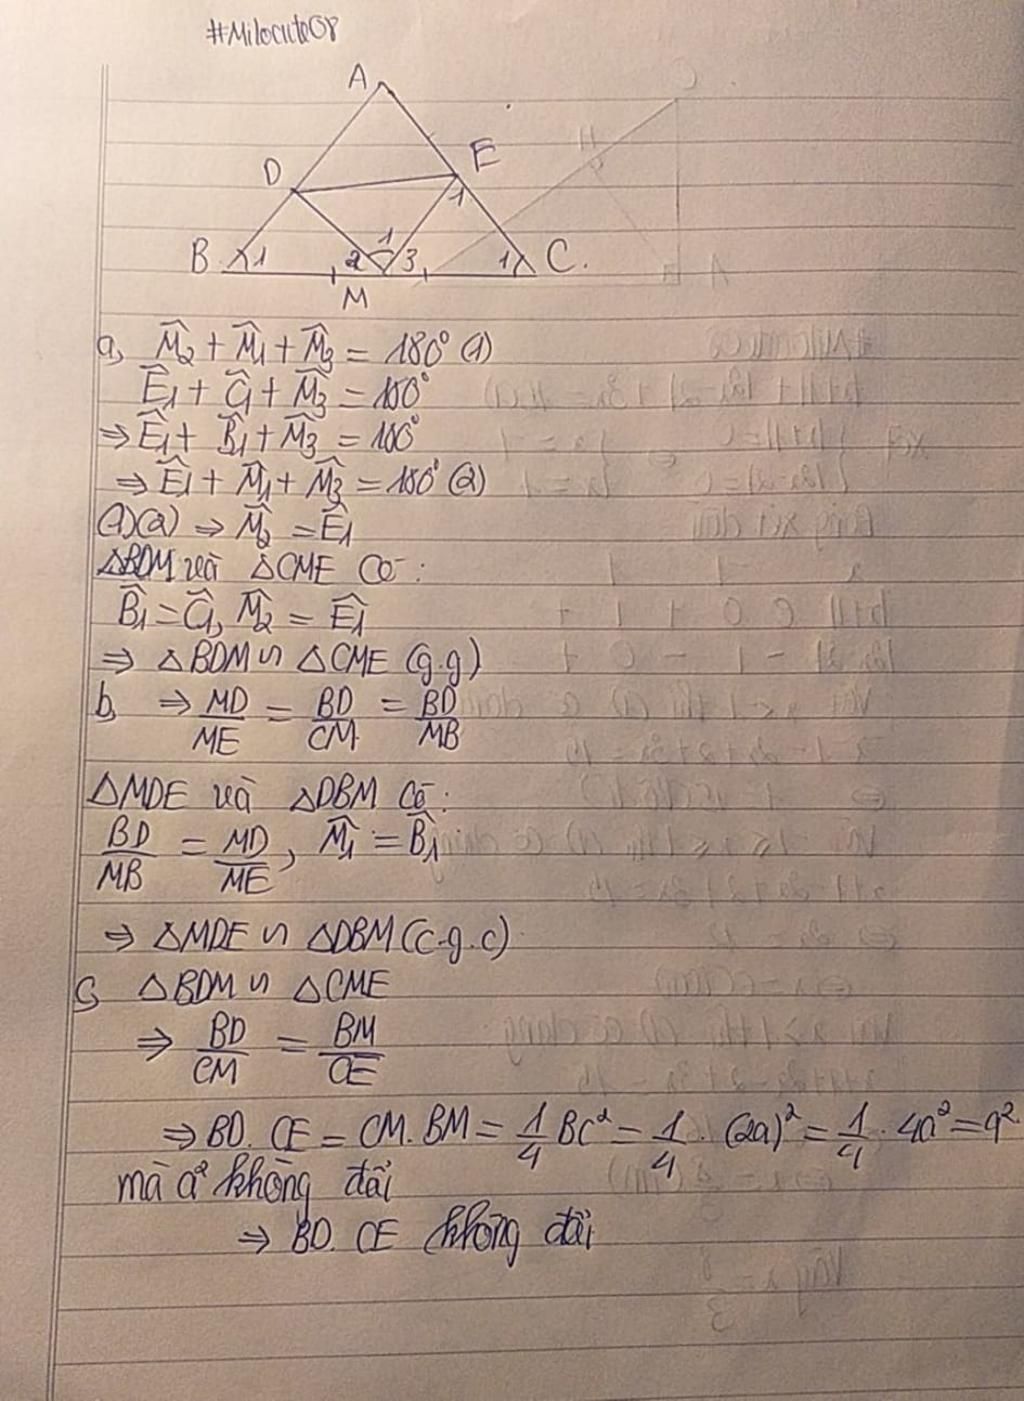 #Milocute08
A
D
E
1
B
1
2
1
3
1
C.
M
a, M̂₂ + M̂₁ + M̂₃ = 180° (1)
Ê₁ + Ĉ₁ + M̂₃ = 180°
⇒ Ê₁ + B̂₁ + M̂₃ = 180°
⇒ Ê₁ + M̂₁ + M̂₃ = 180° (2)
(1)(2) ⇒ M̂₂ = Ê₁
△BDM và △CME có:
B̂₁ = Ĉ₁, M̂₂ = Ê₁
⇒ △BDM ∽ △CME (g.g)
b, ⇒ MD/ME = BD/CM = BD/MB
△MDE và △DBM có:
BD/MB = MD/ME, M̂₁ = B̂₁
⇒ △MDE ∽ △DBM (c.g.c)
c, △BDM ∽ △CME
⇒ BD/CM = BM/CE
⇒ BD. CE = CM. BM = 1/4 BC² = 1/4 . (2a)² = 1/4 . 4a² = a²
mà a² không đổi
⇒ BD. CE không đổi